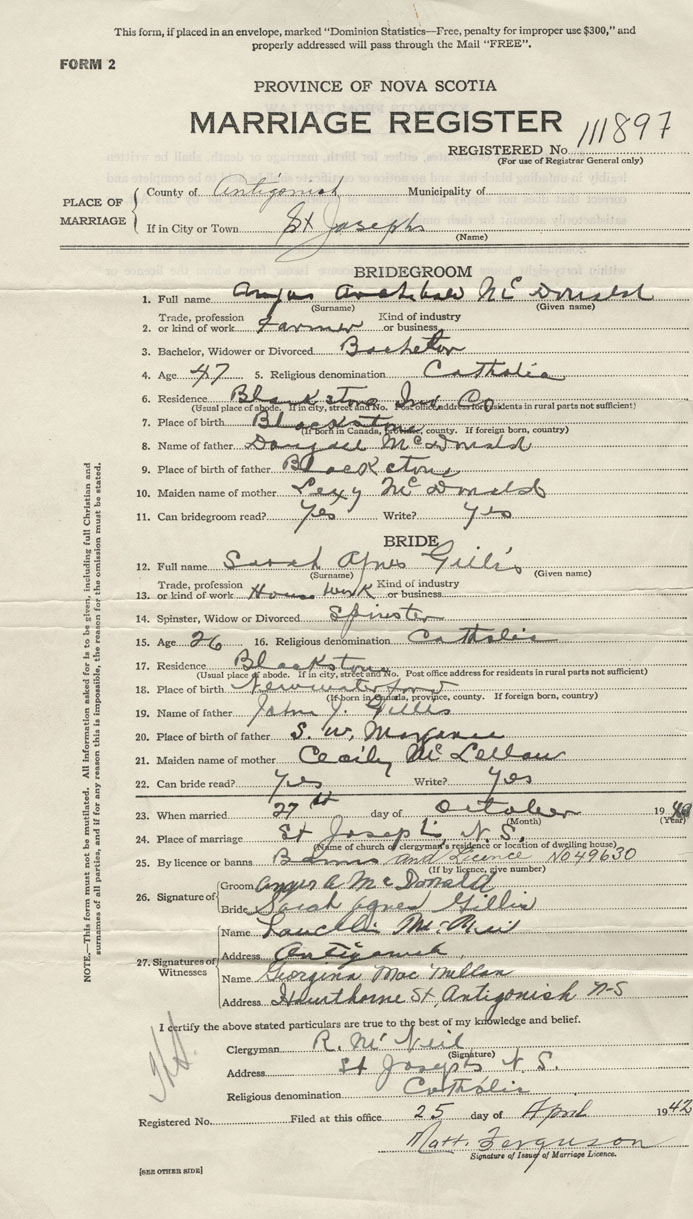 This form, if placed in an envelope, marked "Dominion Statistics—Free, penalty for improper use $300," and
properly addressed will pass through the Mail "FREE".
FORM 2
PROVINCE OF NOVA SCOTIA
MARRIAGE REGISTER
REGISTERED No. 111897
(For use of Registrar General only)
PLACE OF MARRIAGE
County of Antigonish Municipality of
If in City or Town St Josephs
(Name)
BRIDEGROOM
1. Full name Angus Archibald McDonald
(Surname) (Given name)
2. Trade, profession or kind of work Farmer Kind of industry or business
3. Bachelor, Widower or Divorced Bachelor
4. Age 47 5. Religious denomination Catholic
6. Residence Blackstone Co
(Usual place of abode. If in city, street and No. Post office address for residents in rural parts not sufficient)
7. Place of birth Blackstone
(If born in Canada, province, county. If foreign born, country)
8. Name of father Dougald McDonald
9. Place of birth of father Blackstone
10. Maiden name of mother Lexy McDonald
11. Can bridegroom read? Yes Write? Yes
BRIDE
12. Full name Sarah Agnes Gillis
(Surname) (Given name)
13. Trade, profession or kind of work House work Kind of industry or business
14. Spinster, Widow or Divorced Spinster
15. Age 26 16. Religious denomination Catholic
17. Residence Blackstone
(Usual place of abode. If in city, street and No. Post office address for residents in rural parts not sufficient)
18. Place of birth Newwaterford
(If born in Canada, province, county. If foreign born, country)
19. Name of father John J. Gillis
20. Place of birth of father S. W. Margaree
21. Maiden name of mother Cecily McLellan
22. Can bride read? Yes Write? Yes
23. When married 27th day of October 1940
(Month) (Year)
24. Place of marriage St Joseph's N.S.
(Name of church or clergyman's residence or location of dwelling house)
25. By licence or banns Banns and Licence No 49630
(If by licence, give number)
26. Signature of
Groom Angus A McDonald
Bride Sarah Agnes Gillis
27. Signatures of Witnesses
Name Lauchlin
Address Antigonish
Name Georgina MacMillan
Address Hawthorne St, Antigonish N-S
I certify the above stated particulars are true to the best of my knowledge and belief.
Clergyman R. McNeil
(Signature)
Address St Josephs N.S.
Religious denomination Catholic
Registered No. Filed at this office 25 day of April 1942
Matt. Ferguson
Signature of Issuer of Marriage Licence.
[SEE OTHER SIDE]
NOTE.—This form must not be mutilated. All information asked for is to be given, including full Christian and
surnames of all parties, and if for any reason this is impossible, the reason for the omission must be stated.